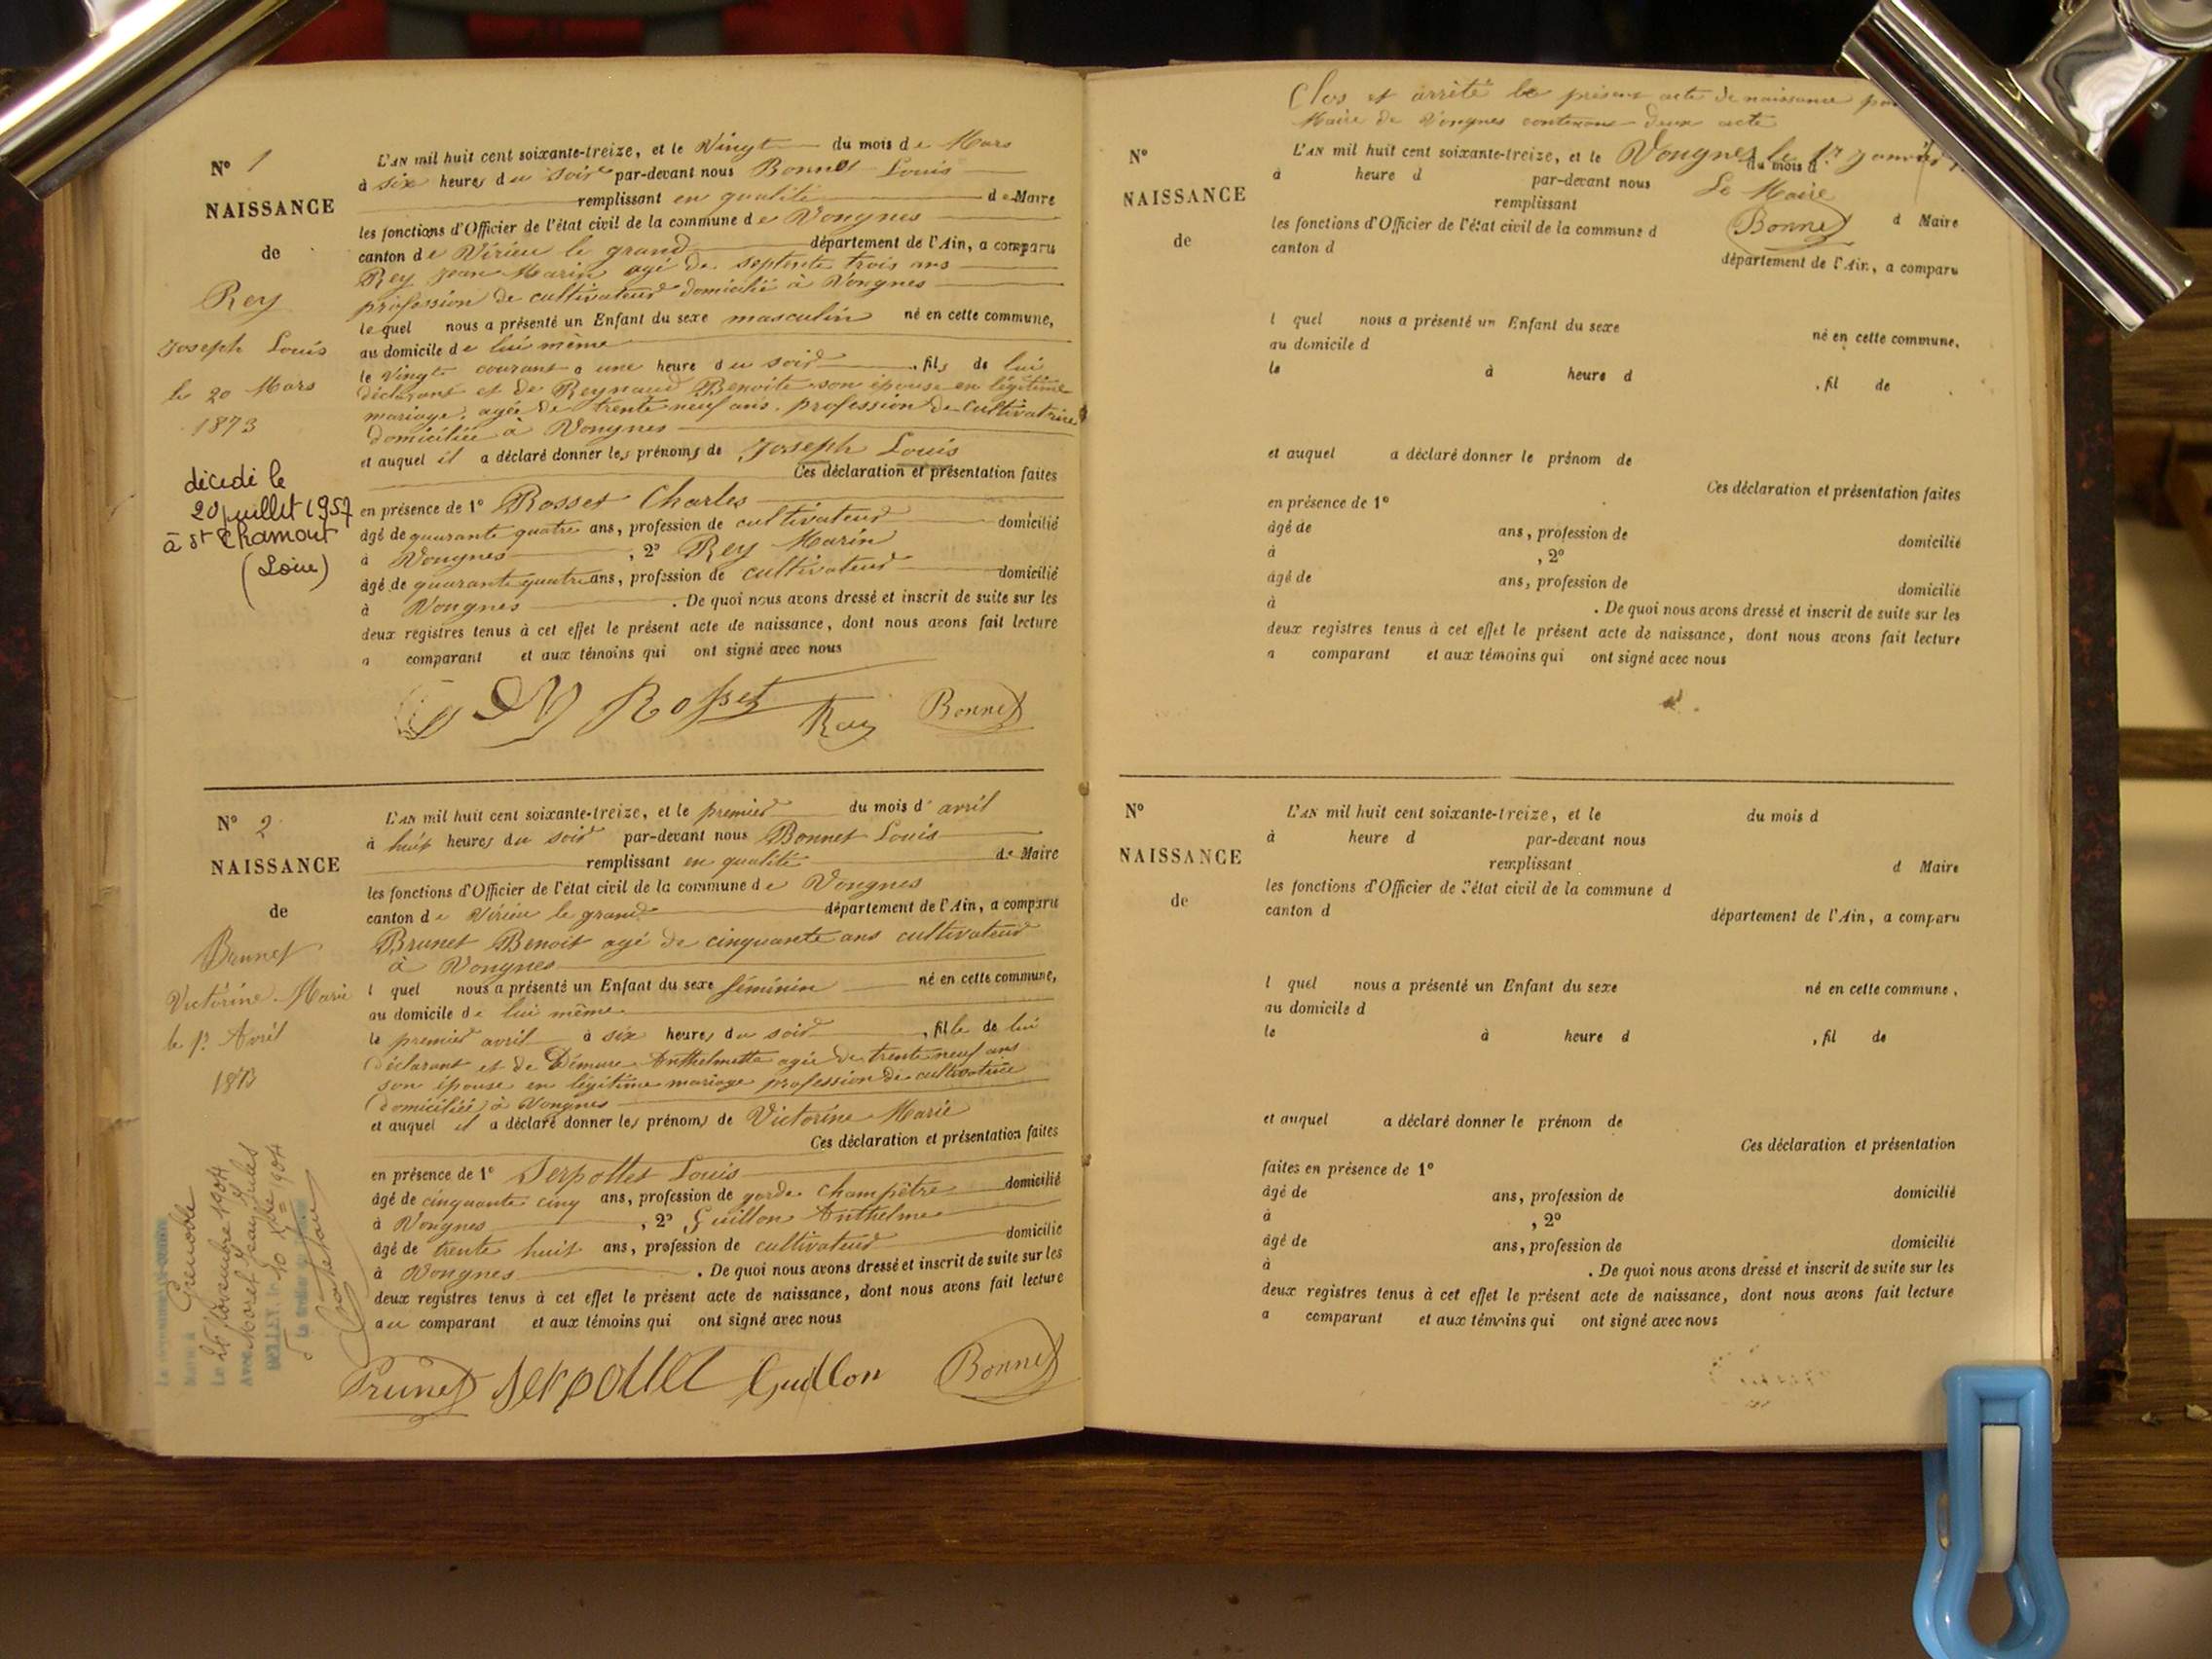 N° 1
NAISSANCE
de
Rey
Joseph Louis
le 20 Mars
1873
décédé le
20 juillet 1957
à St Chamont
(Loire)
L'AN mil huit cent soixante-treize, et le Vingt du mois de Mars
à six heures du soir par-devant nous Bonnet Louis
remplissant en qualité de Maire
les fonctions d'Officier de l'état civil de la commune de Vongnes
canton de Virieu le grand département de l'Ain, a comparu
Rey Jean Marin agé de septente trois ans
profession de cultivateur domicilié à Vongnes
lequel nous a présenté un Enfant du sexe masculin né en cette commune,
au domicile de lui même
le Vingt courant a une heure du soir, fils de lui
déclarant et de Reynaud Benoite son épouse en légitime
mariage, agée de trente neuf ans, profession de cultivatrice
domiciliée à Vongnes
et auquel il a déclaré donner les prénoms de Joseph Louis
Ces déclaration et présentation faites
en présence de 1° Rosset Charles
âgé de quarante quatre ans, profession de cultivateur domicilié
à Vongnes, 2° Rey Marin
âgé de quarante quatre ans, profession de cultivateur domicilié
à Vongnes. De quoi nous avons dressé et inscrit de suite sur les
deux registres tenus à cet effet le présent acte de naissance, dont nous avons fait lecture
a comparant et aux témoins qui ont signé avec nous
Rosset Rey Bonnet
N° 2
NAISSANCE
de
Brunet
Victorine Marie
le 1er Avril
1873
Marié à Grenoble
Le 26 Novembre 1904
Avec Moret
BELLEY, le 10 Xbre 1904
L'AN mil huit cent soixante-treize, et le premier du mois d'avril
à huit heures du soir par-devant nous Bonnet Louis
remplissant en qualité de Maire
les fonctions d'Officier de l'état civil de la commune de Vongnes
canton de Virieu le grand département de l'Ain, a comparu
Brunet Benoit agé de cinquante ans cultivateur
à Vongnes
l quel nous a présenté un Enfant du sexe féminin né en cette commune,
au domicile de lui même
le premier avril à six heures du soir, fille de lui
déclarant et de Démure Anthelmette agée de trente neuf ans
son épouse en légitime mariage profession de cultivatrice
domiciliée à Vongnes
et auquel il a déclaré donner les prénoms de Victorine Marie
Ces déclaration et présentation faites
en présence de 1° Serpollet Louis
âgé de cinquante cinq ans, profession de garde champêtre domicilié
à Vongnes, 2° Guillon Anthelme
âgé de trente huit ans, profession de cultivateur domicilié
à Vongnes. De quoi nous avons dressé et inscrit de suite sur les
deux registres tenus à cet effet le présent acte de naissance, dont nous avons fait lecture
au comparant et aux témoins qui ont signé avec nous
Brunet Serpollet Guillon Bonnet
Clos et arrêté le présent acte de naissance
Maire de Vongnes contenant deux acte
Vongnes le 1er Janvier
Le Maire
Bonnet
N°
NAISSANCE
de
L'AN mil huit cent soixante-treize, et le du mois d
à heure d par-devant nous
remplissant d Maire
les fonctions d'Officier de l'état civil de la commune d
canton d département de l'Ain, a comparu
l quel nous a présenté un Enfant du sexe né en cette commune,
au domicile d
le à heure d , fil de
et auquel a déclaré donner le prénom de
Ces déclaration et présentation faites
en présence de 1°
âgé de ans, profession de domicilié
à , 2°
âgé de ans, profession de domicilié
à . De quoi nous avons dressé et inscrit de suite sur les
deux registres tenus à cet effet le présent acte de naissance, dont nous avons fait lecture
a comparant et aux témoins qui ont signé avec nous
N°
NAISSANCE
de
L'AN mil huit cent soixante-treize, et le du mois d
à heure d par-devant nous
remplissant d Maire
les fonctions d'Officier de l'état civil de la commune d
canton d département de l'Ain, a comparu
l quel nous a présenté un Enfant du sexe né en cette commune,
au domicile d
le à heure d , fil de
et auquel a déclaré donner le prénom de
Ces déclaration et présentation
faites en présence de 1°
âgé de ans, profession de domicilié
à , 2°
âgé de ans, profession de domicilié
à . De quoi nous avons dressé et inscrit de suite sur les
deux registres tenus à cet effet le présent acte de naissance, dont nous avons fait lecture
a comparant et aux témoins qui ont signé avec nous